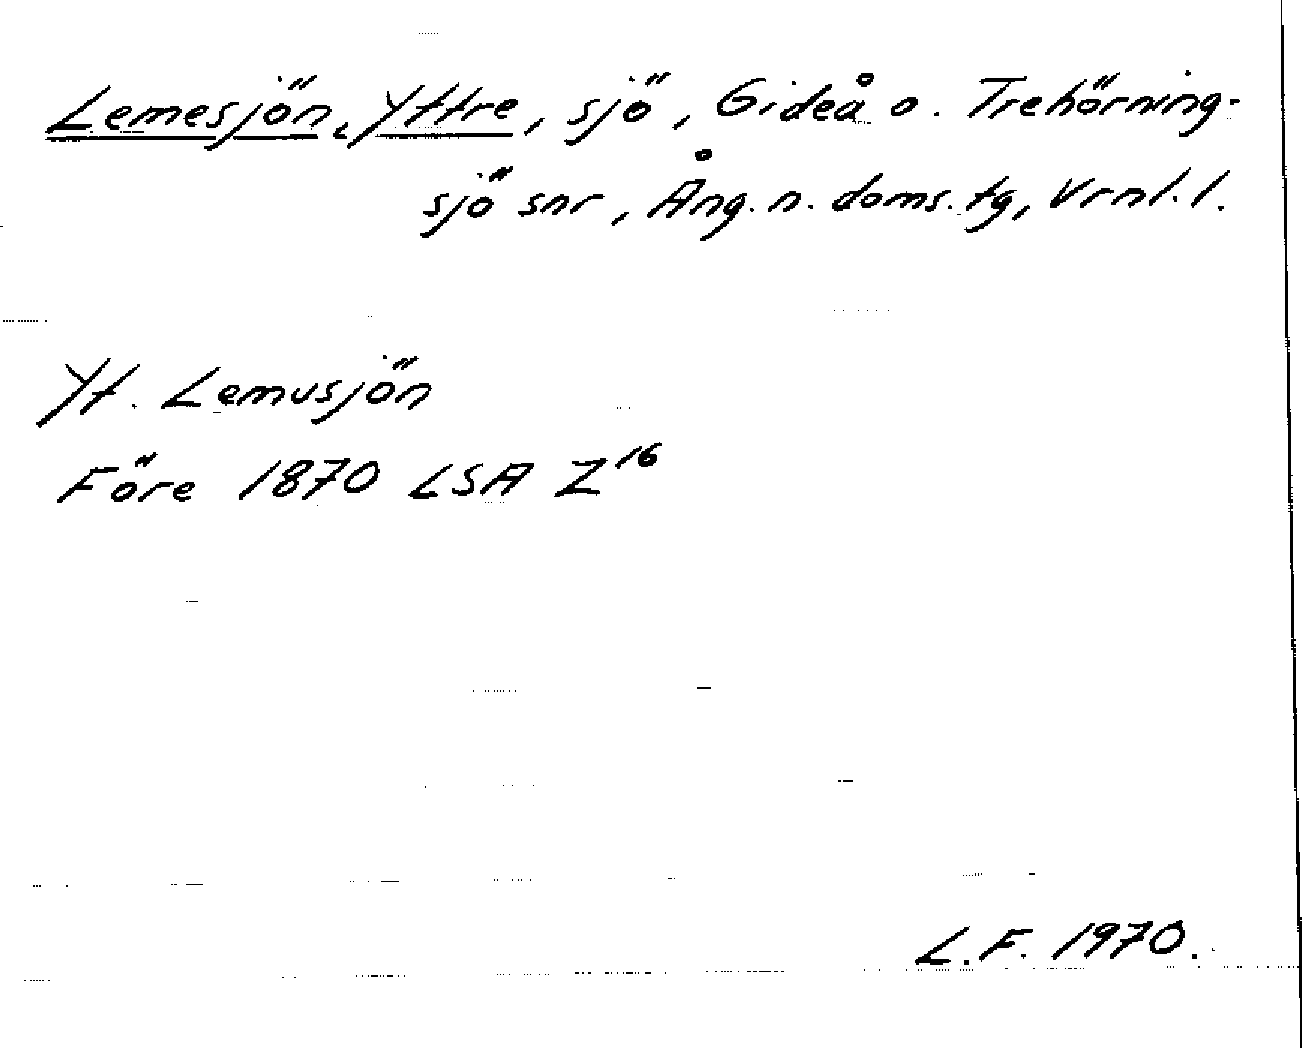 Lemesjön, Yttre, sjö, Gideå o. Trehörning-
sjö snr, Ång. n. doms. tg, Vrnl. l.
Yt. Lemusjön
Före 1870 LSA Z16
L.F. 1970.